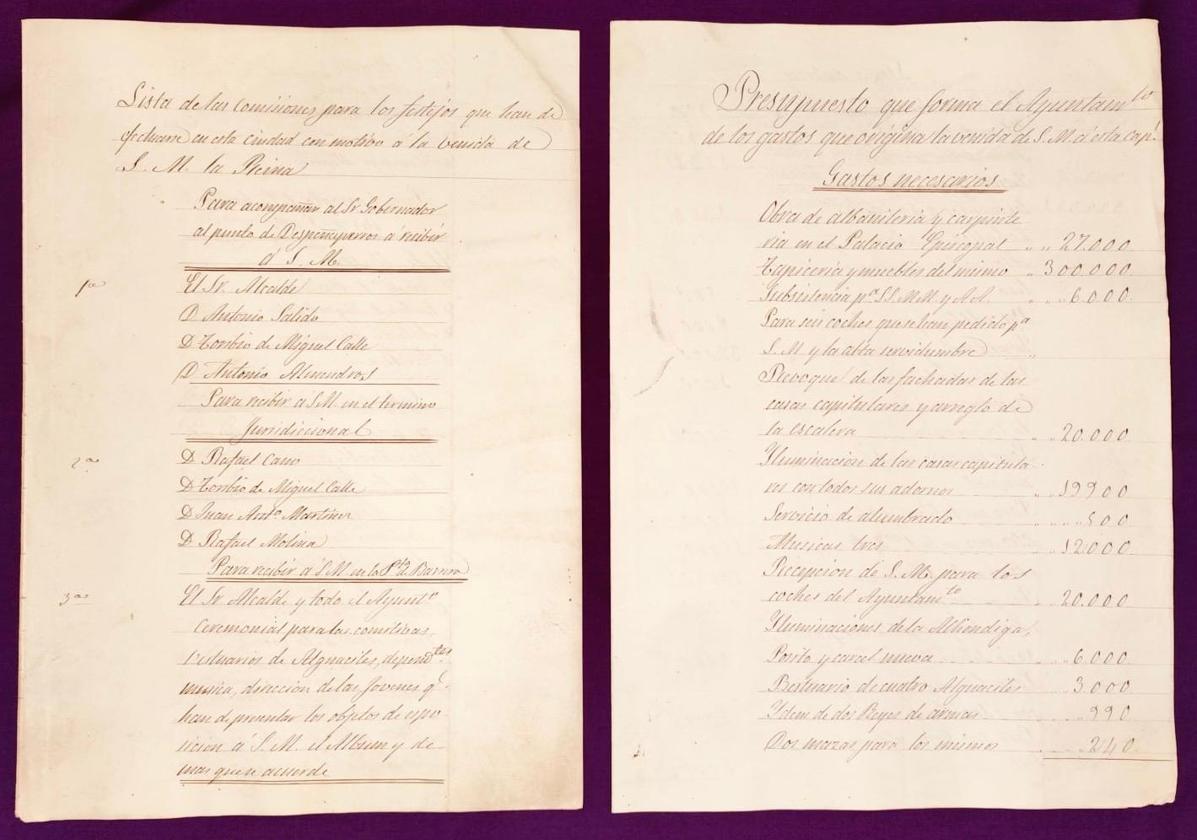 Lista de las comisiones para los festejos que han de
efectuarse en esta ciudad con motivo á la venida de
S. M. la Reina
Para acompañar al Sr Gobernador
al punto de Despeñaperros á recibir
á S. M.
1ª
El Sr. Alcalde
D Antonio Salido
D Toribio de Miguel Calle
D Antonio Almendros
Para recibir á S M en el termino
Juridicional
2ª
D Rafael Cano
D Toribio de Miguel Calle
D Juan Antº Martinez
D Rafael Molina
Para recibir á S M en la Pta de Barrera
3ª
El Sr Alcalde y todo el Ayuntº
Ceremonial para las comitivas,
Vestuarios de Alguaciles, dependtes
musica, dirección de las Jovenes q
han de presentar los objetos de espo
sicion á S. M. el Album y de
mas que se acuerde
Presupuesto que forma el Ayuntamto
de los gastos que origina la venida de S. M á esta capl
Gastos necesarios
Obra de albañileria y carpinte
ria en el Palacio Episcopal .. .. 27.000
Tapiceria y muebles del mismo .. 300.000
Subsistencia pª S S. M M. y A A. .. .. 6.000
Para seis coches que se han pedido pª
S. M y la alta servidumbre ..
Revoque de las fachadas de las
casas capitulares y arreglo de
la escalera .. .. 20.000
Yluminacion de las casas capitula
res con todos sus adornos .. 19900
Servicio de alumbrado .. .. .. 500
Musicas tres .. 12.000
Recepcion de S. M. para los
coches del Ayuntamto .. 20.000
Yluminaciones de la Alhondiga,
Posito y carcel nueva .. 6.000
Bestuario de cuatro Alguaciles .. 3.000
Ydem de dos Reyes de armas .. 990
Dos mazas para los mismos .. 240